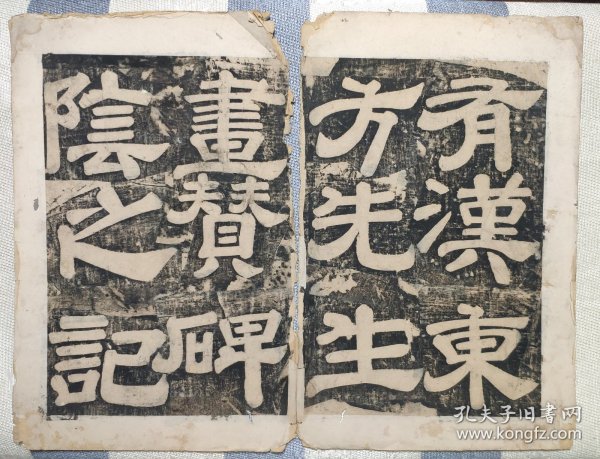 有漢東
方先生
畫贊碑
陰之記
孔夫子旧书网
www.kongfz.com